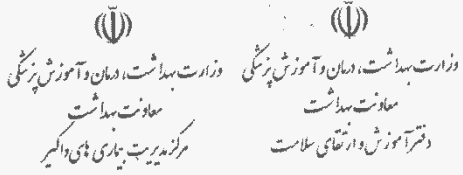 وزارت بهداشت، درمان و آموزش پزشکی
معاونت بهداشت
دفتر آموزش و ارتقای سلامت
وزارت بهداشت، درمان و آموزش پزشکی
معاونت بهداشت
مرکز مدیریت بیماری های واگیر